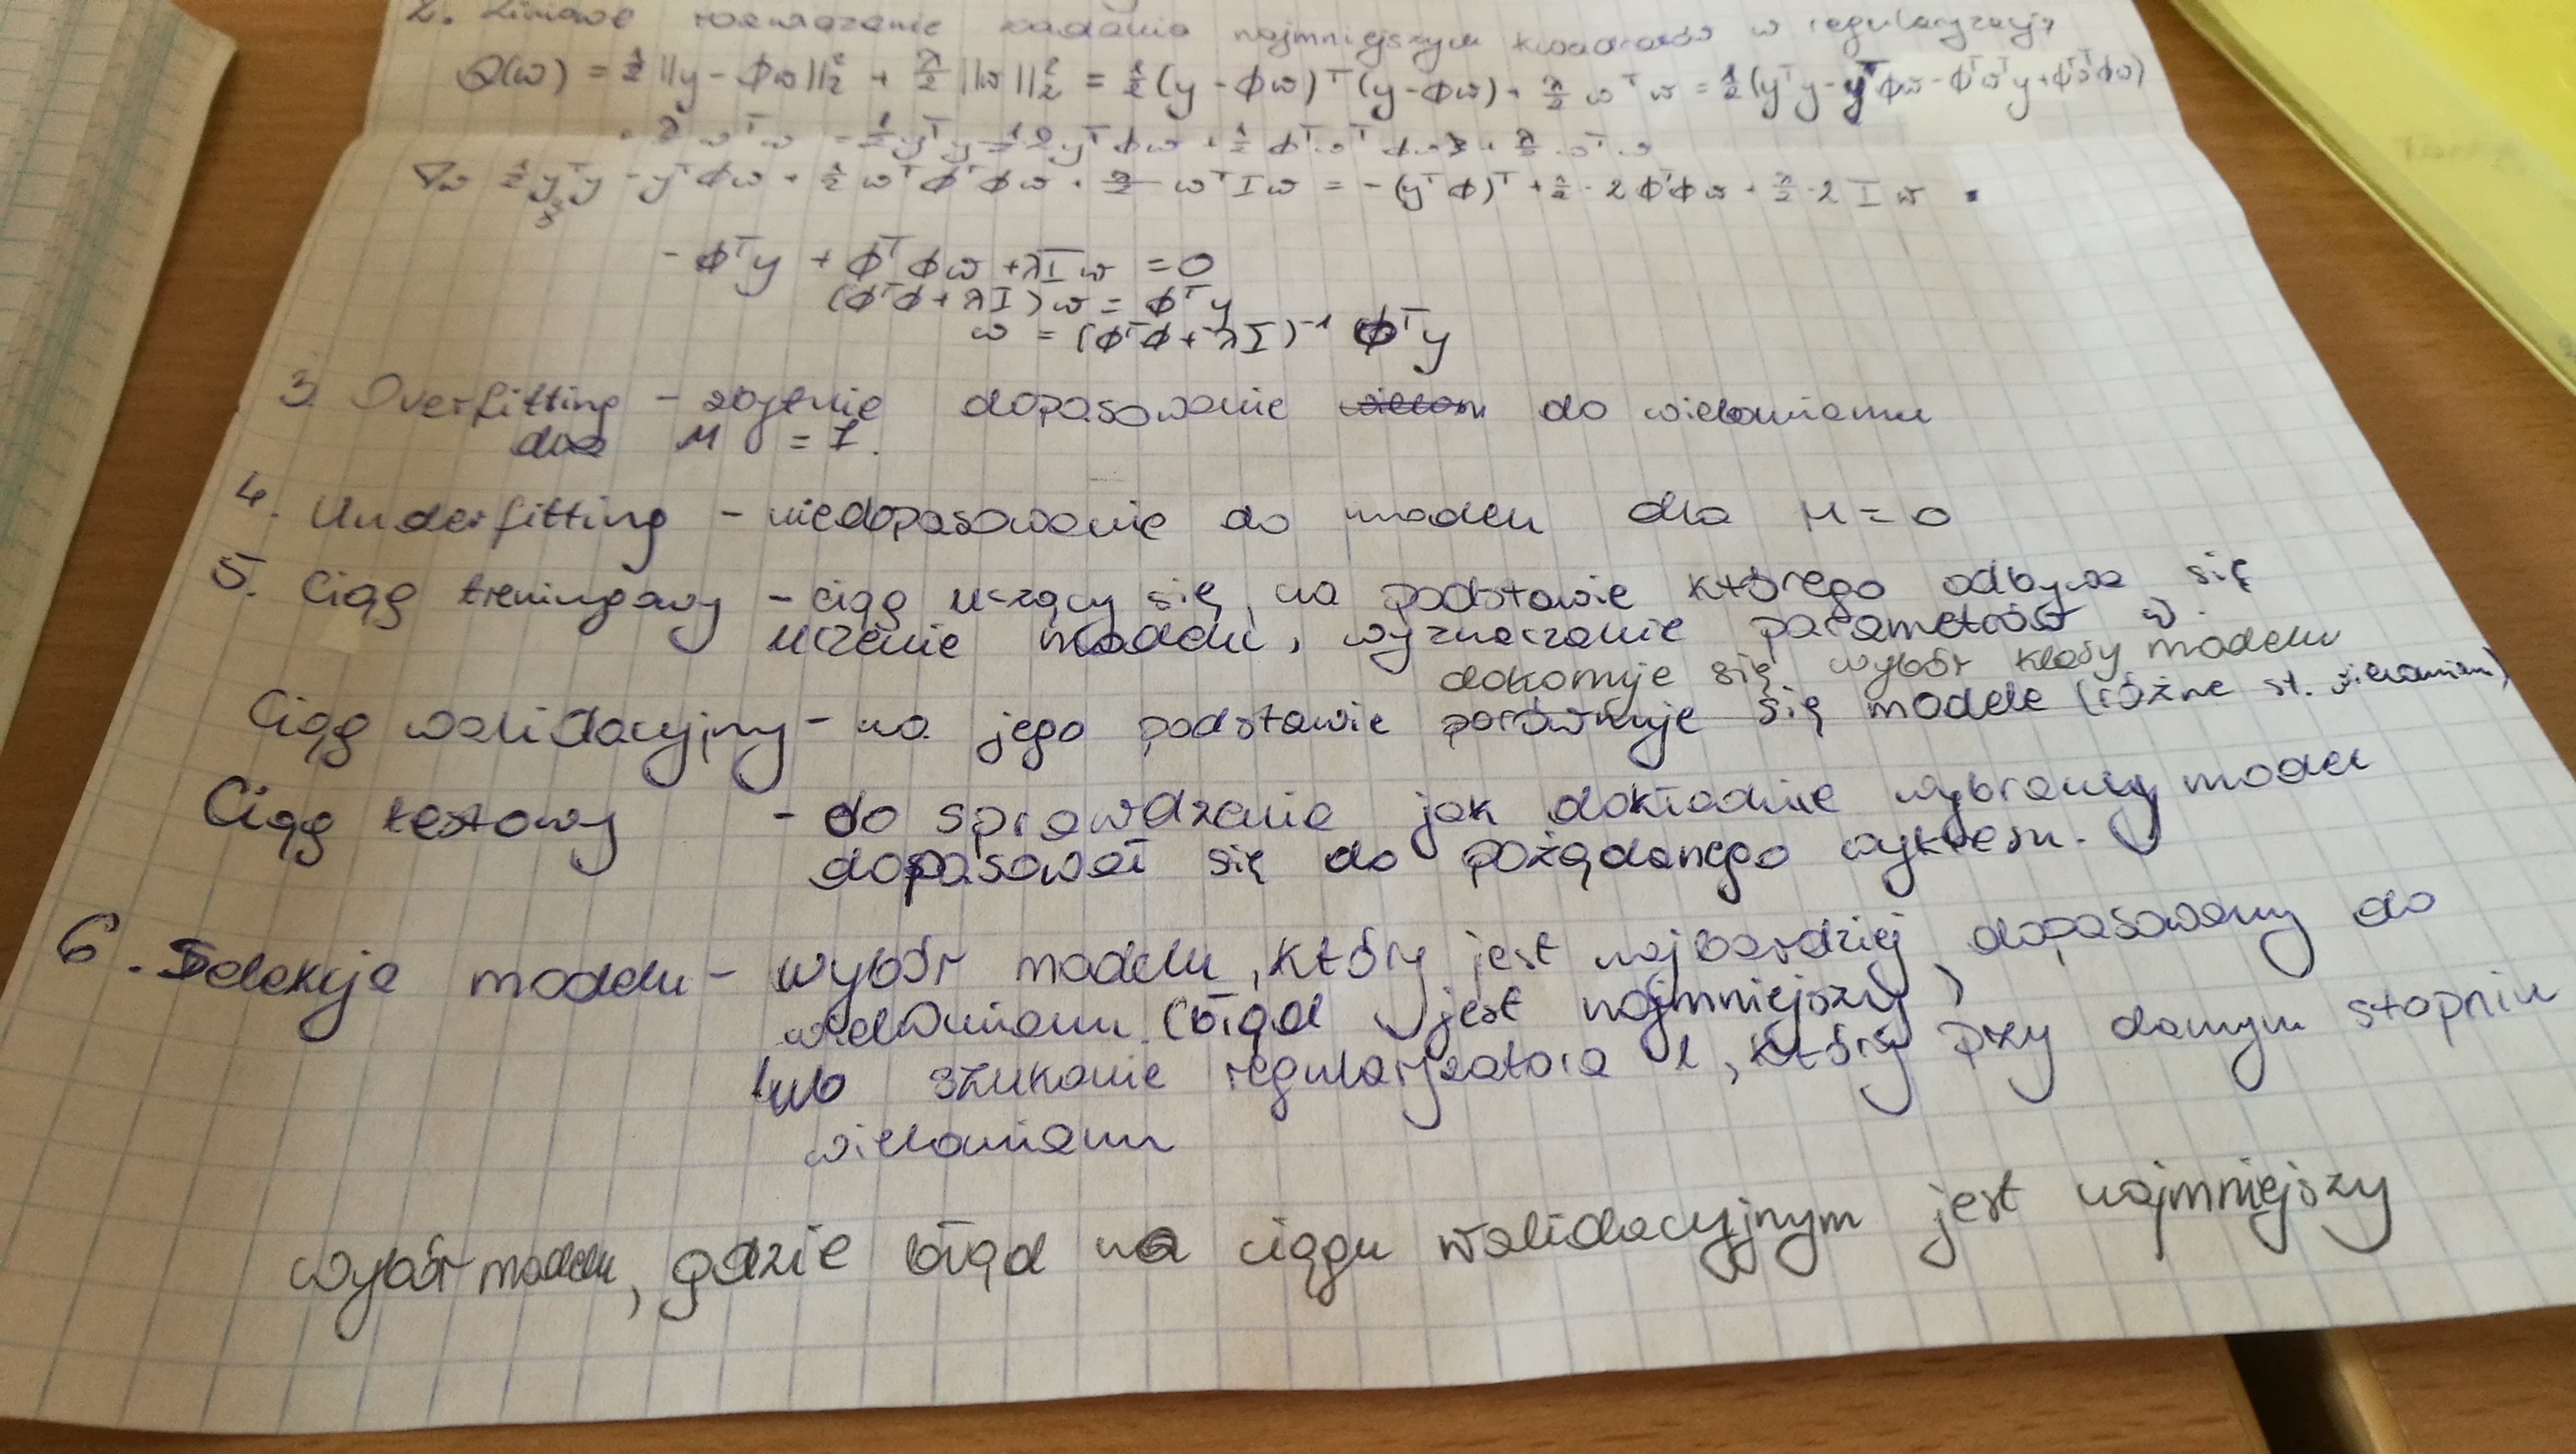 2. Liniowe rozwiązanie zadania najmniejszych kwadratów w regularyzacją
Q(w) = ½ ||y - Φw||₂² + λ/2 ||w||₂² = ½ (y - Φw)ᵀ (y - Φw) + λ/2 wᵀw = ½ (yᵀy - yᵀΦw - Φᵀwᵀy + ΦᵀwᵀΦw)
+ λ/2 wᵀw = ½ yᵀy - ½ 2yᵀΦw + ½ Φᵀwᵀ Φw + λ/2 wᵀw
∇w ½ yᵀy - yᵀΦw + ½ wᵀΦᵀΦw + λ/2 wᵀIw = -(yᵀΦ)ᵀ + ½ · 2ΦᵀΦw + λ/2 · 2 I w
- Φᵀy + ΦᵀΦw + λIw = 0
(ΦᵀΦ + λI)w = Φᵀy
w = (ΦᵀΦ + λI)⁻¹ Φᵀy
3. Overfitting - zbytnie dopasowanie do wielomianu
dla M = 7.
4. Underfitting - niedopasowanie do modelu dla M = 0
5. Ciąg treningowy - ciąg uczący się, na podstawie którego odbywa się
uczenie modelu, wyznaczanie parametrów w.
dokonuje się wybór klasy modelu
Ciąg walidacyjny - na jego podstawie porównuje się modele (różne st. wielomianu)
Ciąg testowy - do sprawdzenia jak dokładnie wybrany model
dopasował się do pożądanego wykresu.
6. Selekcja modelu - wybór modelu, który jest najbardziej dopasowany do
wielomianu (błąd jest najmniejszy)
lub szukanie regularyzatora λ, który przy danym stopniu
wielomianu
wybór modelu, gdzie błąd na ciągu walidacyjnym jest najmniejszy